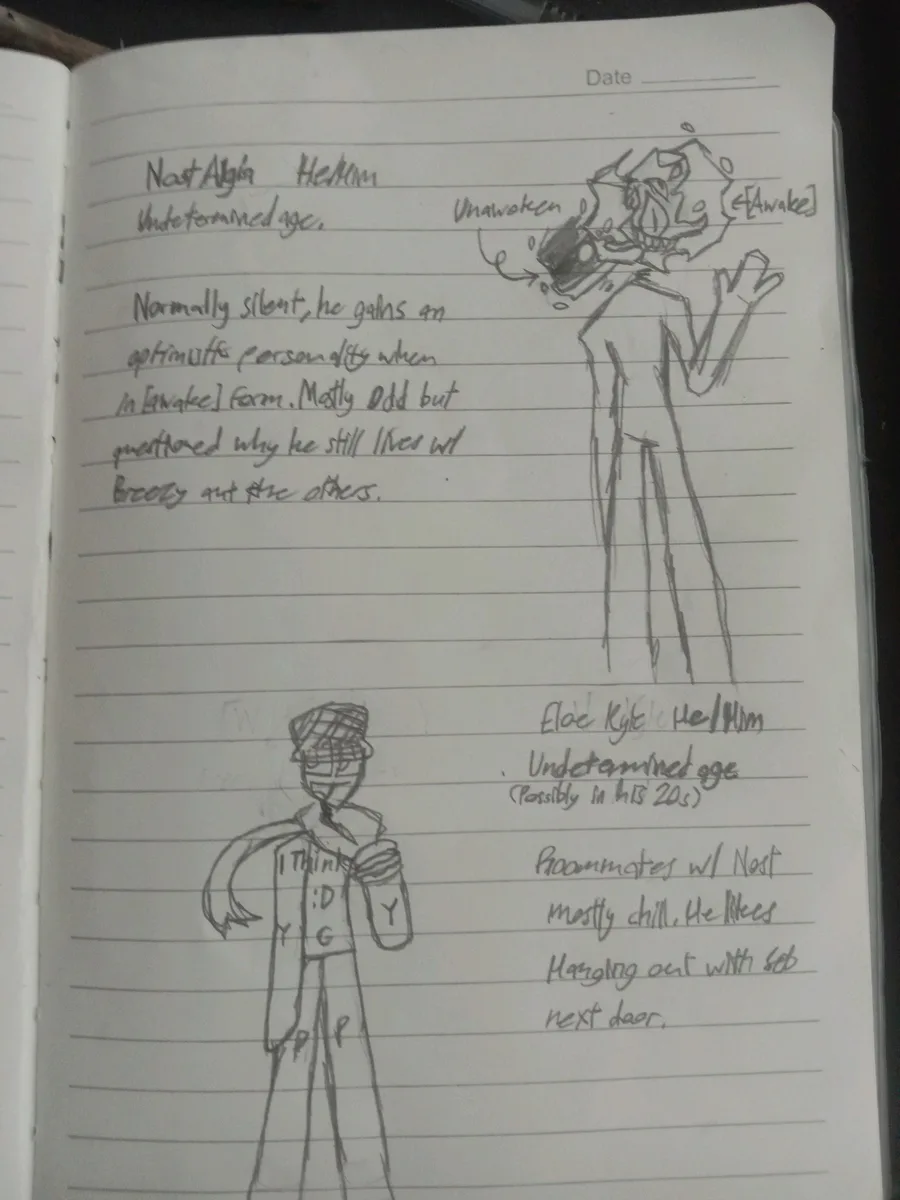 Date
Nostalgia He/Him
Undetermined age.
Unawoken
[Awake]
Normally silent, he gains an
personality when
in [awake] form. Mostly odd but
questioned why he still lives w/
Breezy and the others.
I Think
:D
Y
Y G
P P
Kyle He/Him
Undetermined age
(Possibly in his 20s)
Roommates w/ Nost
mostly chill. He likes
Hanging out with Seb
next door.